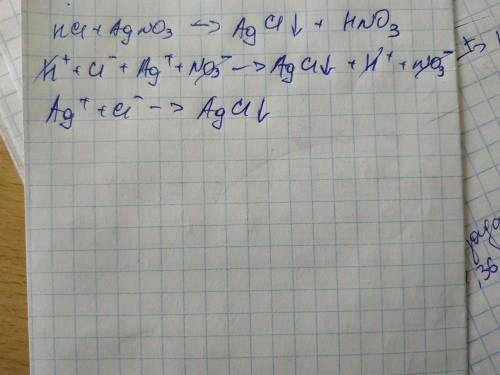 HCl + AgNO₃ -> AgCl↓ + HNO₃
H⁺ + Cl⁻ + Ag⁺ + NO₃⁻ -> AgCl↓ + H⁺ + NO₃⁻
Ag⁺ + Cl⁻ -> AgCl↓